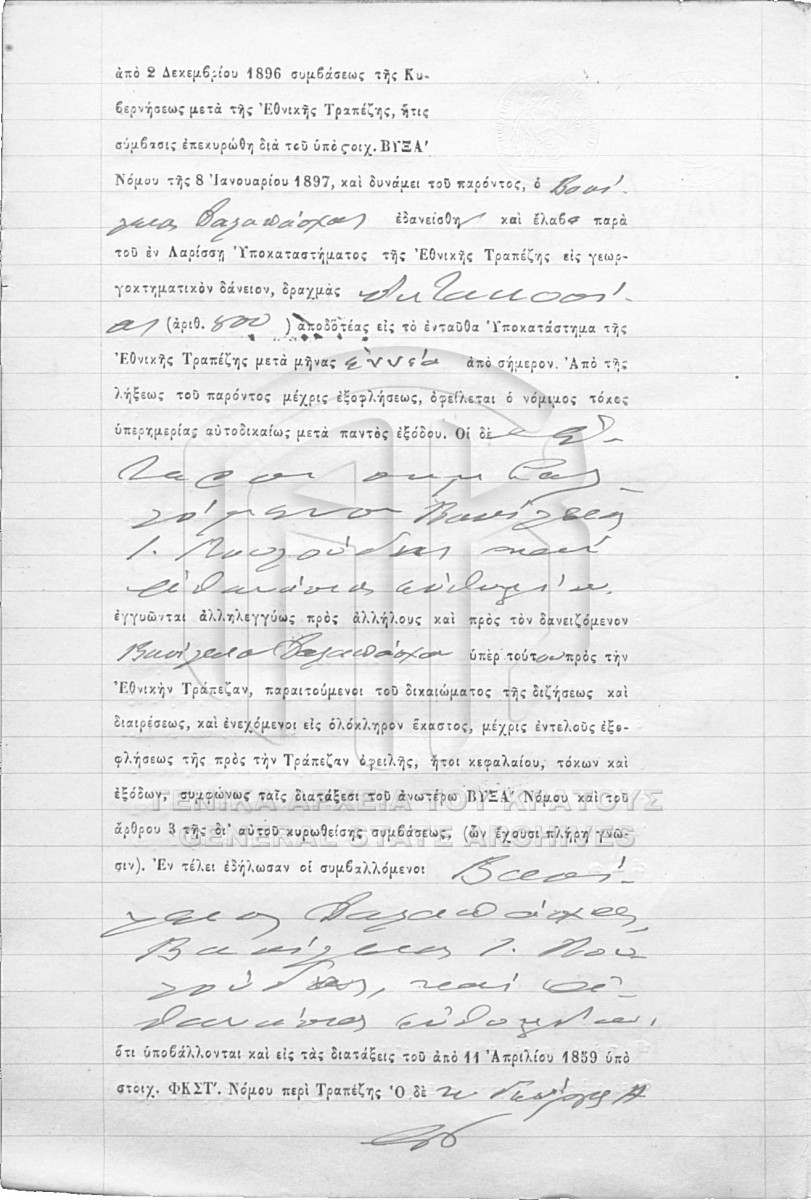 ἀπὸ 2 Δεκεμβρίου 1896 συμβάσεως τῆς Κυ-
βερνήσεως μετὰ τῆς Ἐθνικῆς Τραπέζης, ἥτις
σύμβασις ἐπεκυρώθη διὰ τοῦ ὑπὸ ϛοιχ. ΒΥΞΑ'
Νόμου τῆς 8 Ἰανουαρίου 1897, καὶ δυνάμει τοῦ παρόντος, ὁ Βασί-
λειος ἐδανείσθη καὶ ἔλαβε παρὰ
τοῦ ἐν Λαρίσσῃ Ὑποκαταστήματος τῆς Ἐθνικῆς Τραπέζης εἰς γεωρ-
γοκτηματικὸν δάνειον, δραχμὰς ὀκτακοσί-
ας (ἀριθ. 800 ) ἀποδοτέας εἰς τὸ ἐνταῦθα Ὑποκατάστημα τῆς
Ἐθνικῆς Τραπέζης μετὰ μῆνας ἐννέα ἀπὸ σήμερον. Ἀπὸ τῆς
λήξεως τοῦ παρόντος μέχρις ἐξοφλήσεως, ὀφείλεται ὁ νόμιμος τόκος
ὑπερημερίας αὐτοδικαίως μετὰ παντὸς ἐξόδου. Οἱ δὲ
συμβαλ-
λόμενοι Βασίλειος
Ἰ. καὶ
Ἀθανάσιος
ἐγγυῶνται ἀλληλεγγύως πρὸς ἀλλήλους καὶ πρὸς τὸν δανειζόμενον
Βασίλειον ὑπὲρ τούτου πρὸς τὴν
Ἐθνικὴν Τράπεζαν, παραιτούμενοι τοῦ δικαιώματος τῆς διζήσεως καὶ
διαιρέσεως, καὶ ἐνεχόμενοι εἰς ὁλόκληρον ἕκαστος, μέχρις ἐντελοῦς ἐξο-
φλήσεως τῆς πρὸς τὴν Τράπεζαν ὀφειλῆς, ἤτοι κεφαλαίου, τόκων καὶ
ἐξόδων, συμφώνως ταῖς διατάξεσι τοῦ ἀνωτέρω ΒΥΞΑ' Νόμου καὶ τοῦ
ΓΕΝΙΚΑ ΑΡΧΕΙΑ ΤΟΥ ΚΡΑΤΟΥΣ
ἄρθρου 3 τῆς δι' αὐτοῦ κυρωθείσης συμβάσεως, (ὧν ἔχουσι πλήρη γνῶ-
GENERAL STATE ARCHIVES
σιν). Ἐν τέλει ἐδήλωσαν οἱ συμβαλλόμενοι Βασί-
λειος
Βασίλειος Ἰ.
καὶ Ἀ-
θανάσιος
ὅτι ὑποβάλλονται καὶ εἰς τὰς διατάξεις τοῦ ἀπὸ 11 Ἀπριλίου 1859 ὑπὸ
στοιχ. ΦΚΣΤ'. Νόμου περὶ Τραπέζης Ὁ δὲ